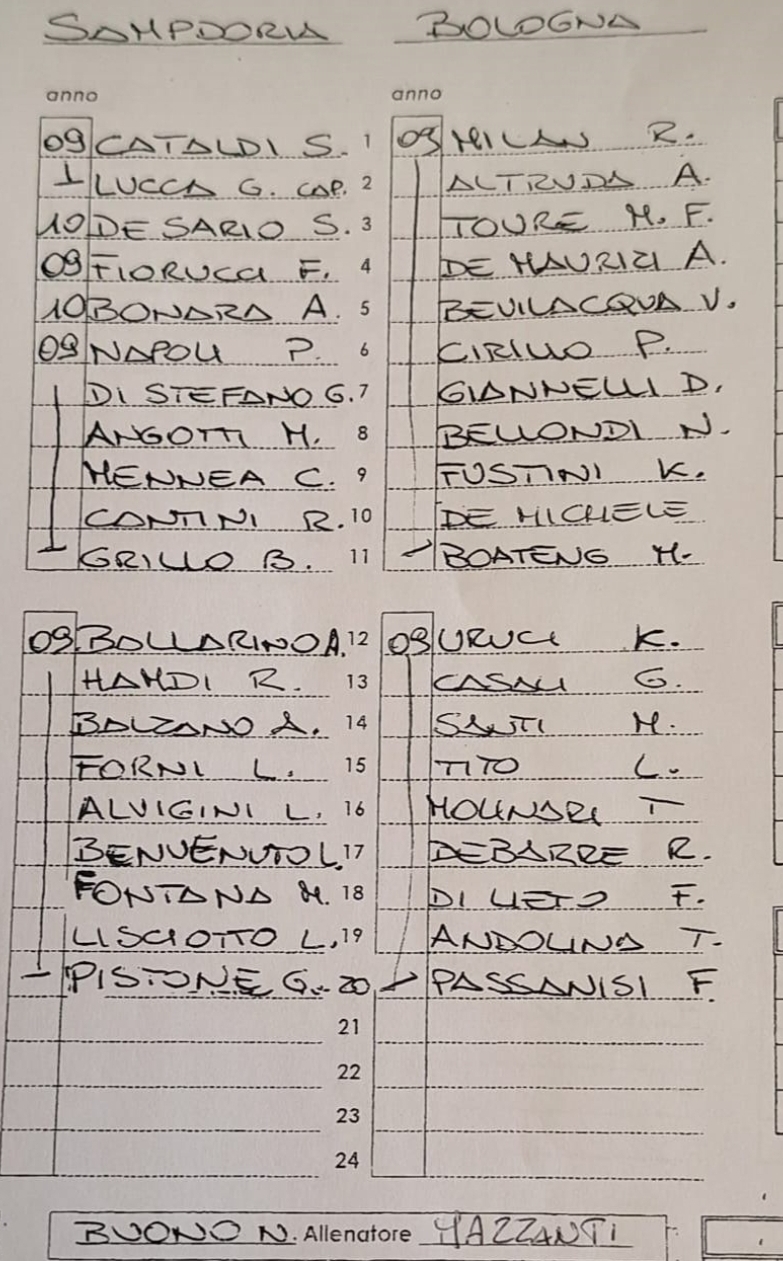 SAMPDORIA BOLOGNA
anno anno
09 CATALDI S. 1 09 MILAN R.
LUCCA G. CAP. 2 ALTRUDA A.
10 DE SARIO S. 3 TOURE M. F.
09 FIORUCCI F. 4 DE MAURIZI A.
10 BONARA A. 5 BEVILACQUA V.
09 NAPOLI P. 6 CIRILLO P.
DI STEFANO G. 7 GIANNELLI D.
ANGOTTI M. 8 BELLONDI N.
MENNEA C. 9 FUSTINI K.
CONTINI R. 10 DE MICHELE
GRILLO B. 11 BOATENG M.
09 BOLLARINO A. 12 09 URUCI K.
HAMDI R. 13 CASALI G.
BALZANO A. 14 SANTI M.
FORNI L. 15 TITO L.
ALVIGINI L. 16 MOLINARI T
BENVENUTO L. 17 DEBARRE R.
FONTANA M. 18 DI LIETO F.
LISCIOTTO L. 19 ANDOLINA T.
PISTONE G. 20 PASSANISI F.
21
22
23
24
BUONO N. Allenatore MAZZANTI